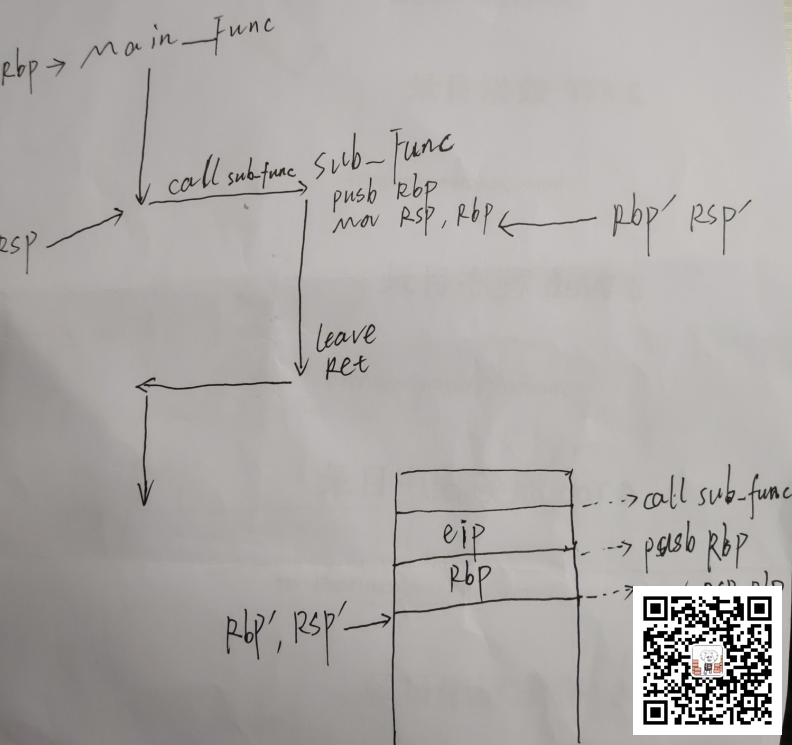 Rbp → Main_Func
call sub-func
Sub_Func
push Rbp
Mov RSP, Rbp
Rbp' RSP'
RSP
leave
Ret
call sub-func
eip
push Rbp
Rbp
Rbp', RSP'